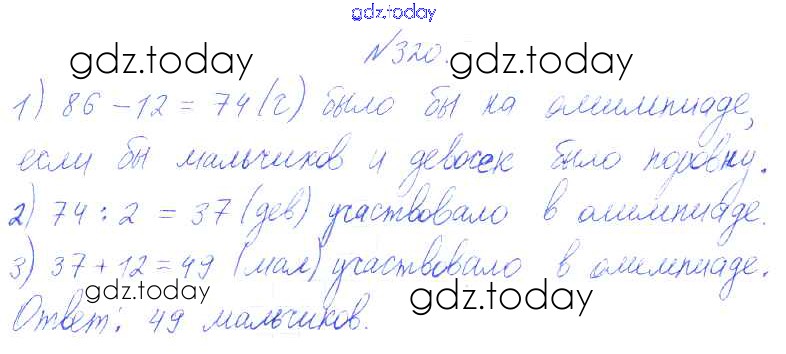 gdz.today
gdz.today gdz.today
№320.
1) 86 - 12 = 74 (ч) было бы на олимпиаде,
если бы мальчиков и девочек было поровну.
gdz.today gdz.today
2) 74 : 2 = 37 (дев) участвовало в олимпиаде.
3) 37 + 12 = 49 (мал) участвовало в олимпиаде.
gdz.today gdz.today
Ответ: 49 мальчиков.